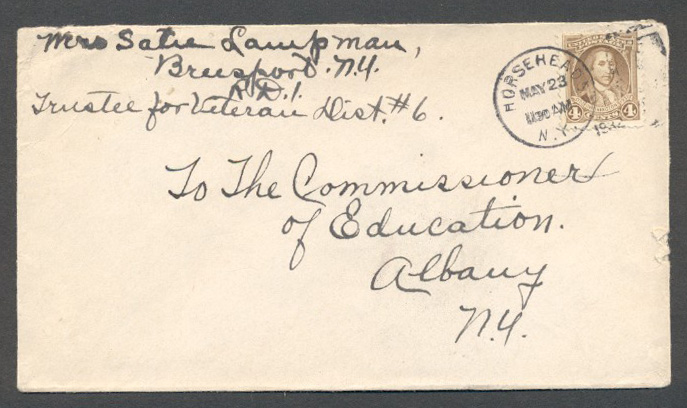 Mrs Satie Lampman,
Breesport. N.Y.
R.D.1.
Trustee for Veteran Dist. #6.
HORSEHEADS
MAY 23
11 30 AM
N.Y. 1932
4 4
To The Commissioner
of Education.
Albany
N.Y.